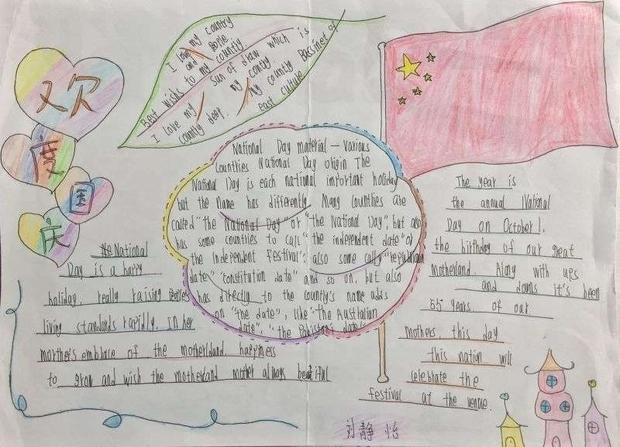 欢
度
国
庆
I love my country
and
to my country
sun of draw which is
Best wishs
I love my
my contry
My country Bassinet of
country deep.
east culture
National Day material - Various
Countries National Day Origin The
National Day is each national important holiday
but the name has differently Many countries are
called "the National Day" or "the National Day", but also
has some countries to call "the independent date" or
the independent festival" also some call "republican
date" "constitution date" and so on, but also
has directly to the country's name adds
on "the date", like "the Australian
date", "the Pakistani date"
The year is
the annual National
Day on October 1.
the birthday of our great
motherland. Along with ups
and downs it's been
55 years of our
mothers this day
this nation will
celebrate the
festival at the venue.
National
Day is a happy
holiday, really raising
living standards rapidly, in her
morther's embrace of the motherldand happiness
to grow and wish the motherland mother always
刘静怡